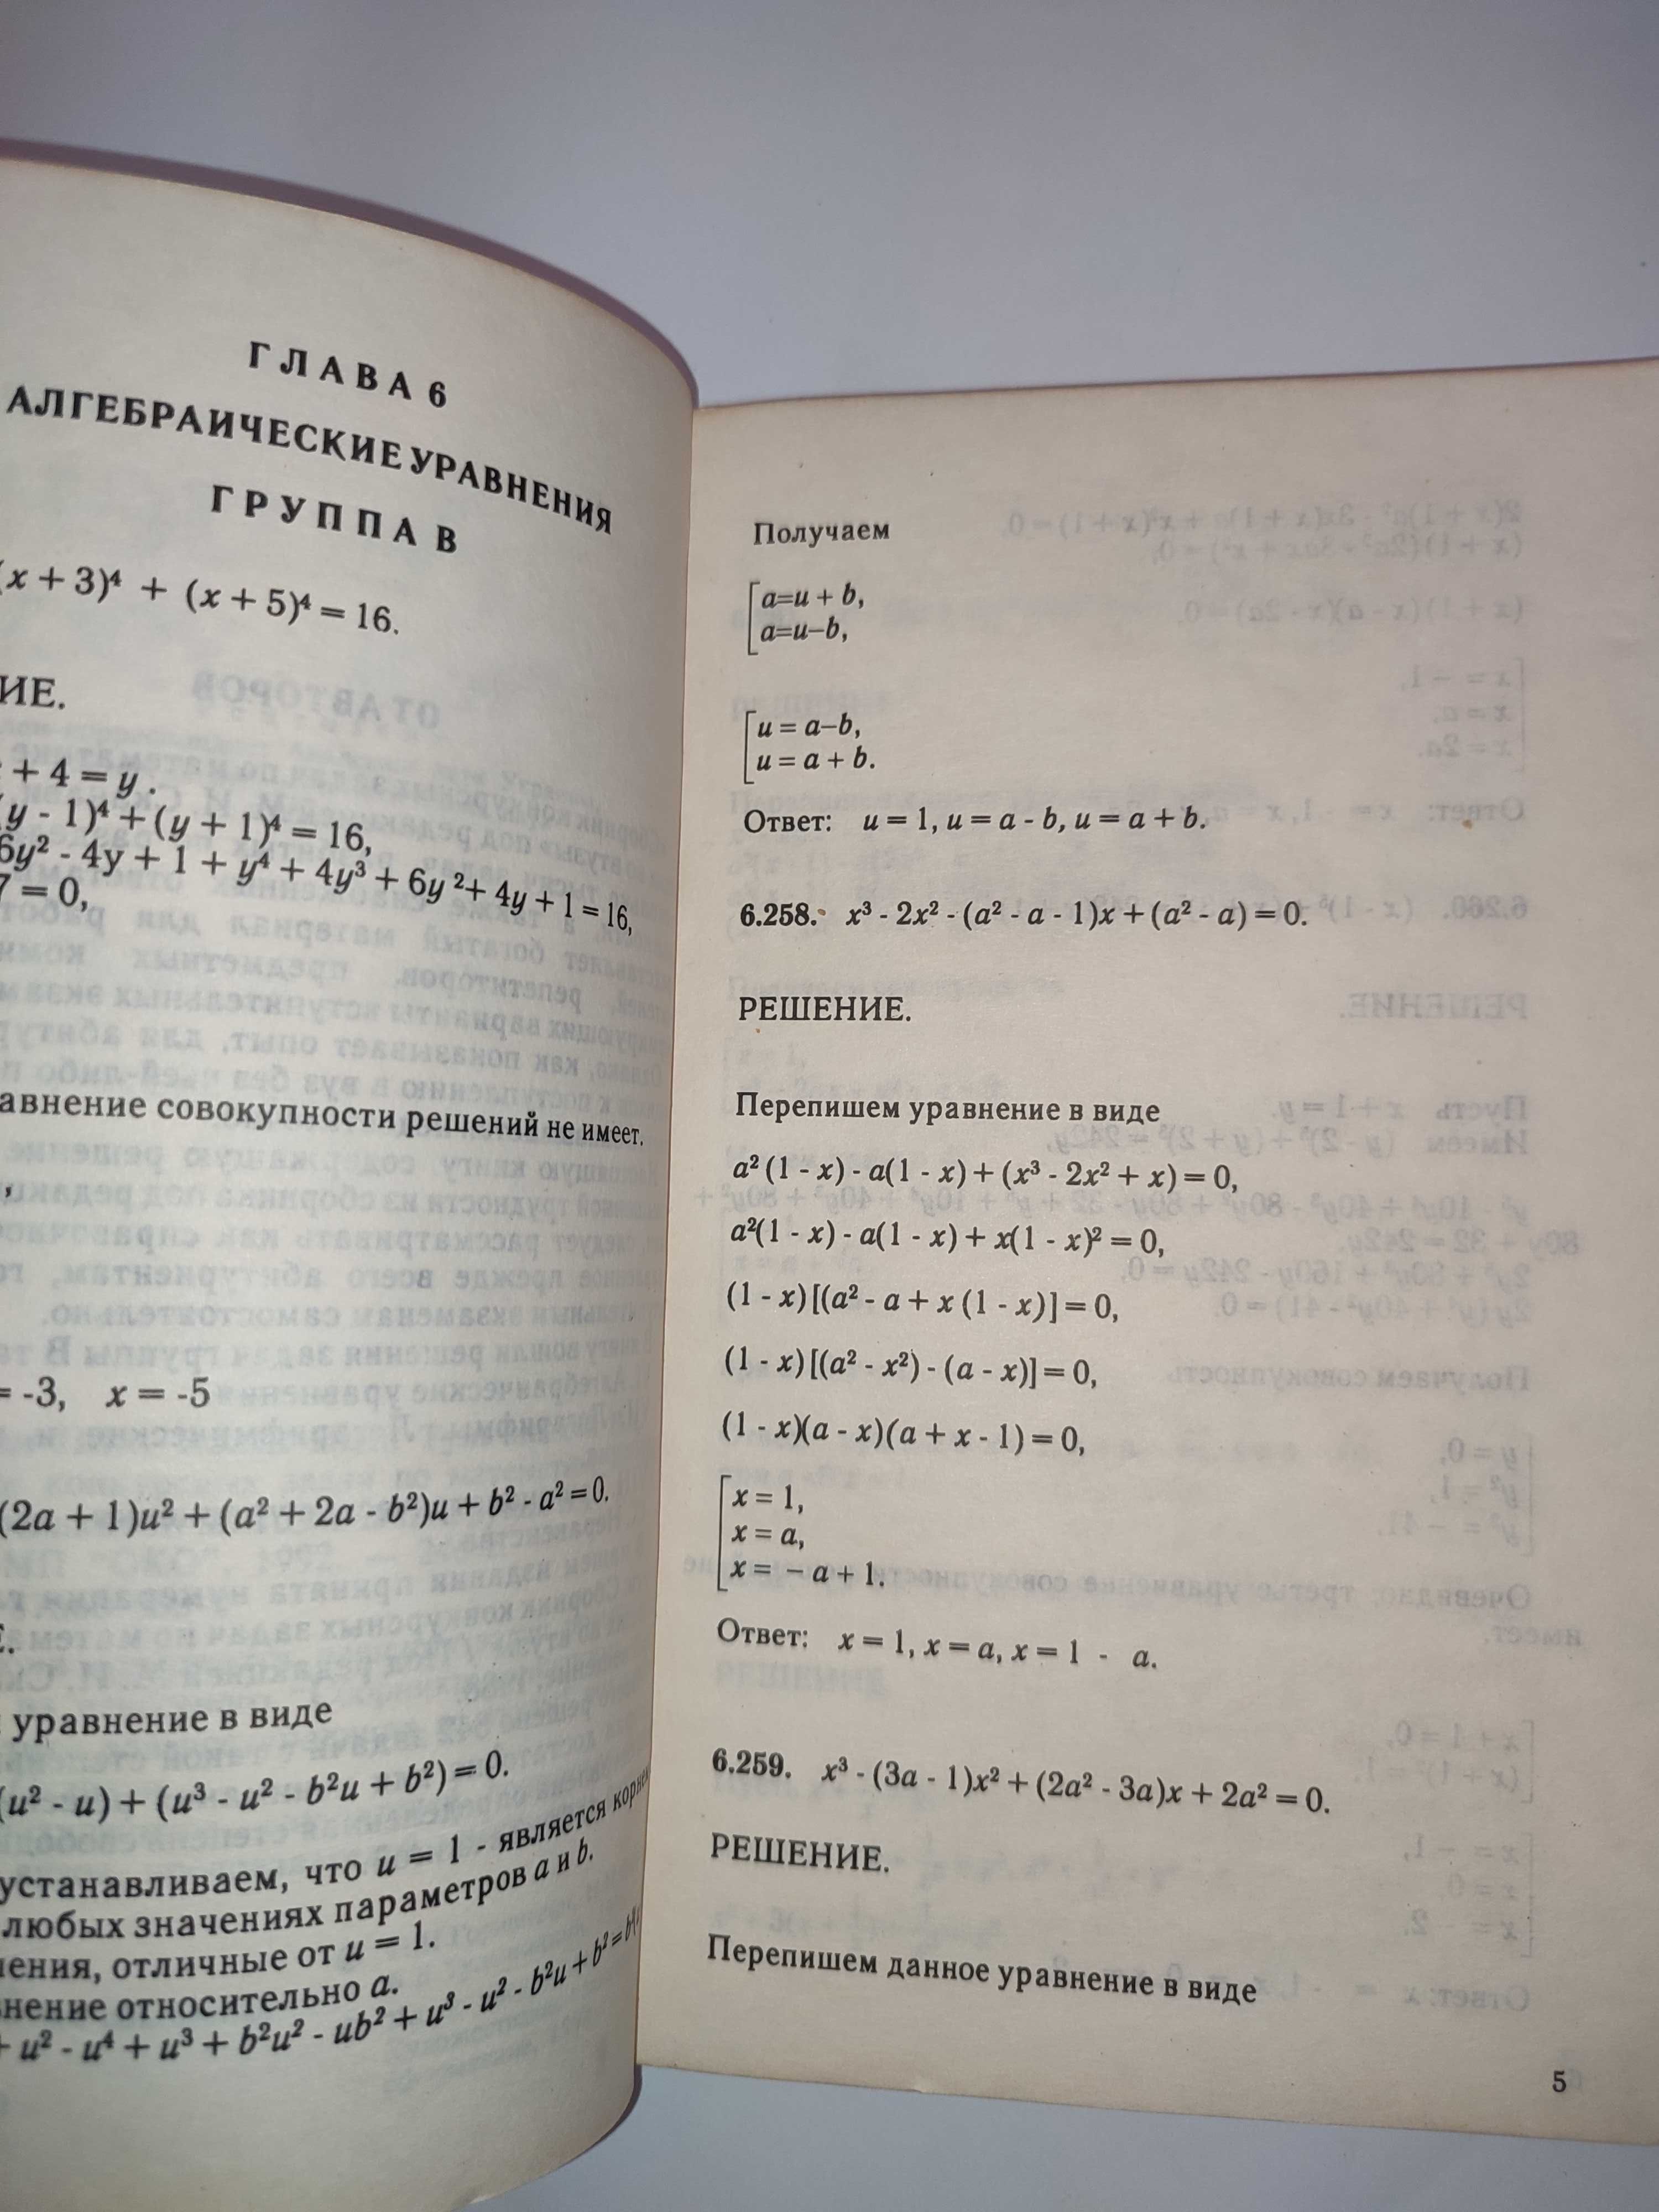 ГЛАВА 6
АЛГЕБРАИЧЕСКИЕ УРАВНЕНИЯ
ГРУППА В
(x + 3)⁴ + (x + 5)⁴ = 16.
ИЕ.
+ 4 = y.
(y - 1)⁴ + (y + 1)⁴ = 16,
6y² - 4y + 1 + y⁴ + 4y³ + 6y² + 4y + 1 = 16,
7 = 0,
авнение совокупности решений не имеет.
,
= -3, x = -5
(2a + 1)u² + (a² + 2a - b²)u + b² - a² = 0.
Е.
уравнение в виде
(u² - u) + (u³ - u² - b²u + b²) = 0.
устанавливаем, что u = 1 - является корнем
любых значениях параметров a и b.
ения, отличные от u = 1.
нение относительно a.
+ u² - u⁴ + u³ + b²u² - ub² + u³ - u² - b²u + b² = b²
Получаем
[a=u + b,
a=u–b,
[u = a–b,
u = a + b.
Ответ: u = 1, u = a - b, u = a + b.
6.258. x³ - 2x² - (a² - a - 1)x + (a² - a) = 0.
РЕШЕНИЕ.
Перепишем уравнение в виде
a² (1 - x) - a(1 - x) + (x³ - 2x² + x) = 0,
a²(1 - x) - a(1 - x) + x(1 - x)² = 0,
(1 - x) [(a² - a + x (1 - x)] = 0,
(1 - x) [(a² - x²) - (a - x)] = 0,
(1 - x)(a - x)(a + x - 1) = 0,
[x = 1,
x = a,
x = – a + 1.
Ответ: x = 1, x = a, x = 1 - a.
6.259. x³ - (3a - 1)x² + (2a² - 3a)x + 2a² = 0.
РЕШЕНИЕ.
Перепишем данное уравнение в виде
5